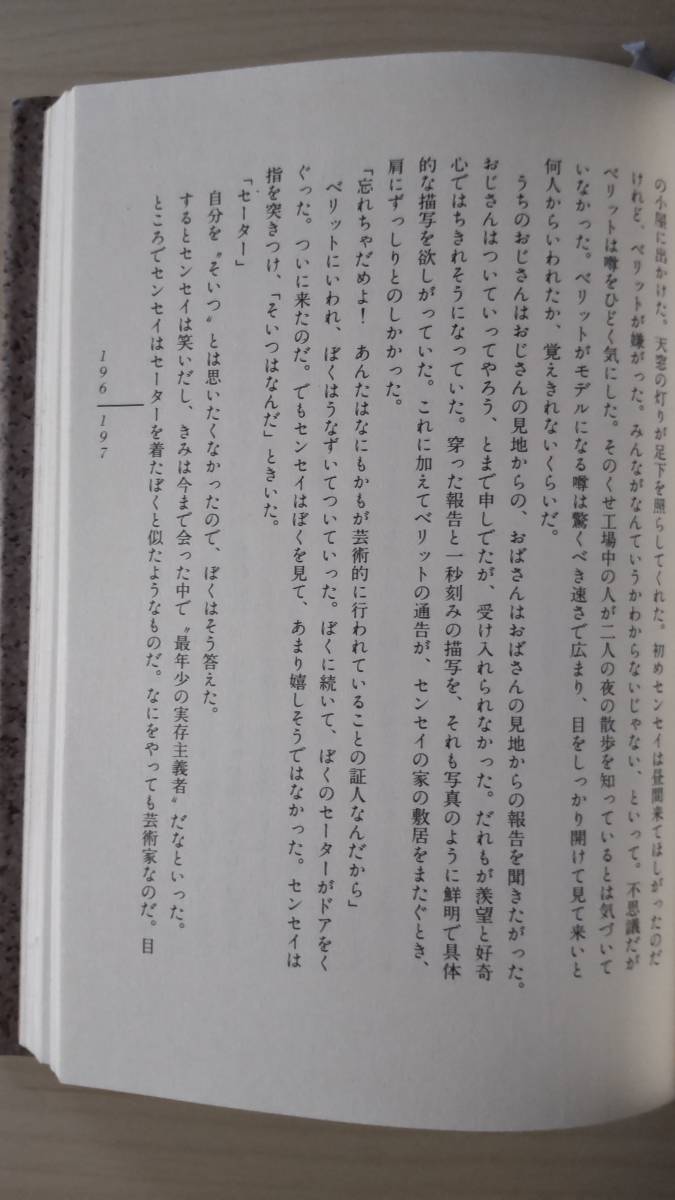 の小屋に出かけた。天窓の灯りが足下を照らしてくれた。初めセンセイは昼間来てほしがったのだ
けれど、ベリットが嫌がった。みんながなんていうかわからないじゃない、といって。不思議だが
ベリットは噂をひどく気にした。そのくせ工場中の人が二人の夜の散歩を知っているとは気づいて
いなかった。ベリットがモデルになる噂は驚くべき速さで広まり、目をしっかり開けて見て来いと
何人からいわれたか、覚えきれないくらいだ。
うちのおじさんはおじさんの見地からの、おばさんはおばさんの見地からの報告を聞きたがった。
おじさんはついていってやろう、とまで申しでたが、受け入れられなかった。だれもが羨望と好奇
心ではちきれそうになっていた。穿った報告と一秒刻みの描写を、それも写真のように鮮明で具体
的な描写を欲しがっていた。これに加えてベリットの通告が、センセイの家の敷居をまたぐとき、
肩にずっしりとのしかかった。
「忘れちゃだめよ！　あんたはなにもかもが芸術的に行われていることの証人なんだから」
ベリットにいわれ、ぼくはうなずいてついていった。ぼくに続いて、ぼくのセーターがドアをく
ぐった。ついに来たのだ。でもセンセイはぼくを見て、あまり嬉しそうではなかった。センセイは
指を突きつけ、「そいつはなんだ」ときいた。
「セーター」
自分を〝そいつ〟とは思いたくなかったので、ぼくはそう答えた。
するとセンセイは笑いだし、きみは今まで会った中で〝最年少の実存主義者〟だなといった。
ところでセンセイはセーターを着たぼくと似たようなものだ。なにをやっても芸術家なのだ。目
196
197